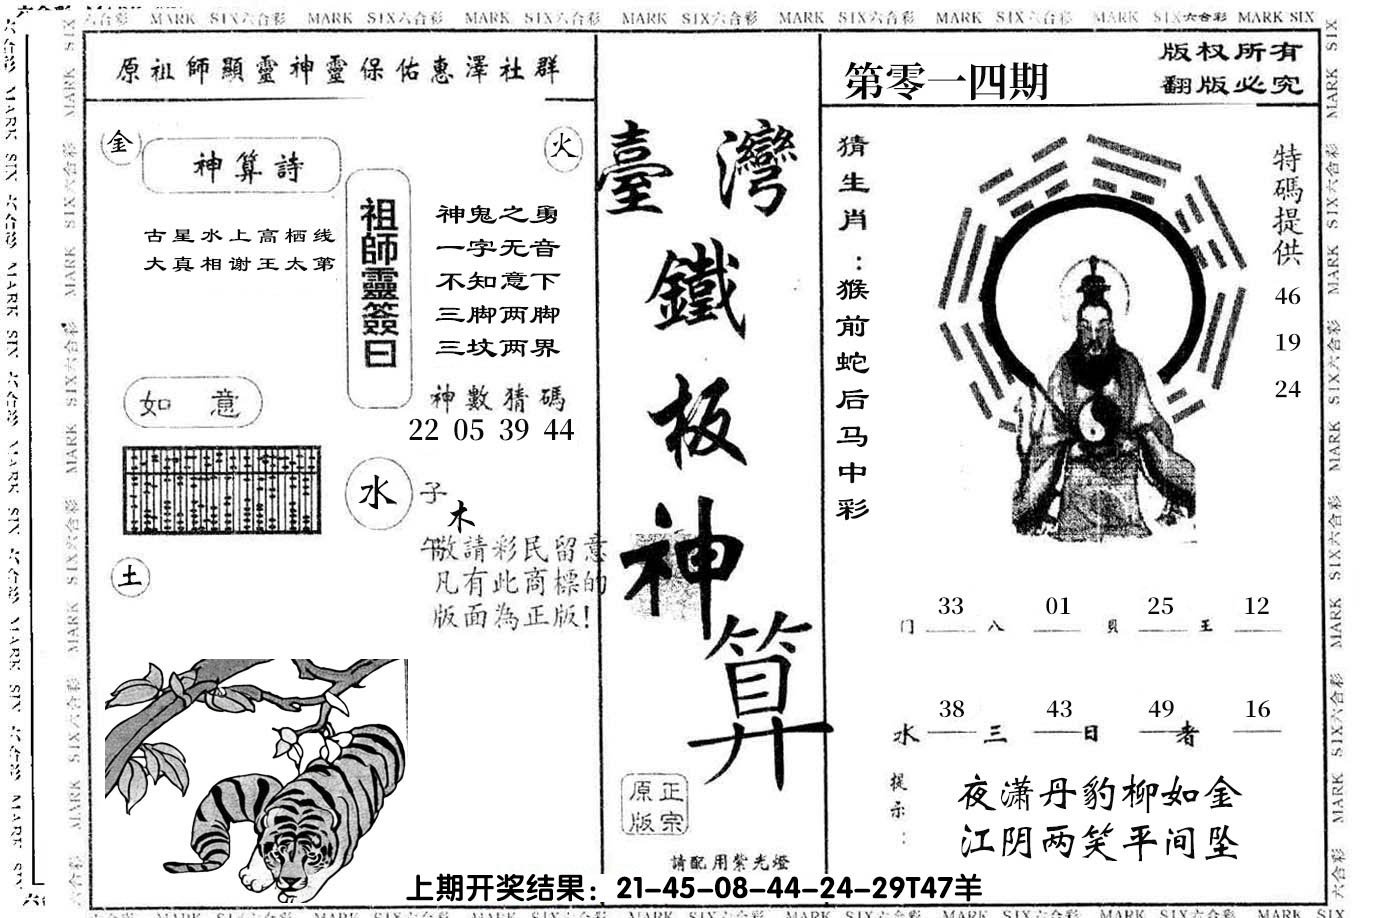 MARK SIX六合彩 MARK SIX六合彩 MARK SIX六合彩 MARK SIX六合彩 MARK SIX六合彩 MARK SIX六合彩 MARK SIX六合彩 MARK SIX
原祖師顯靈神靈保佑惠澤社群
金
神算詩
火
古星水上高栖线
大真相谢王太第
祖師靈簽曰
神鬼之勇
一字无音
不知意下
三脚两脚
三坟两界
神數猜碼
22 05 39 44
如意
水
子
木
午
敬請彩民留意
凡有此商標的
版面為正版!
土
臺灣
鐵
板
神
算
正宗
原版
請配用紫光燈
第零一四期
版权所有
翻版必究
猜生肖:猴前蛇后马中彩
特碼提供
46
19
24
33 01 25 12
门 八 貝 王
38 43 49 16
水 三 日 者
提示:
夜潇丹豹柳如金
江阴两笑平间坠
上期开奖结果：21-45-08-44-24-29T47羊